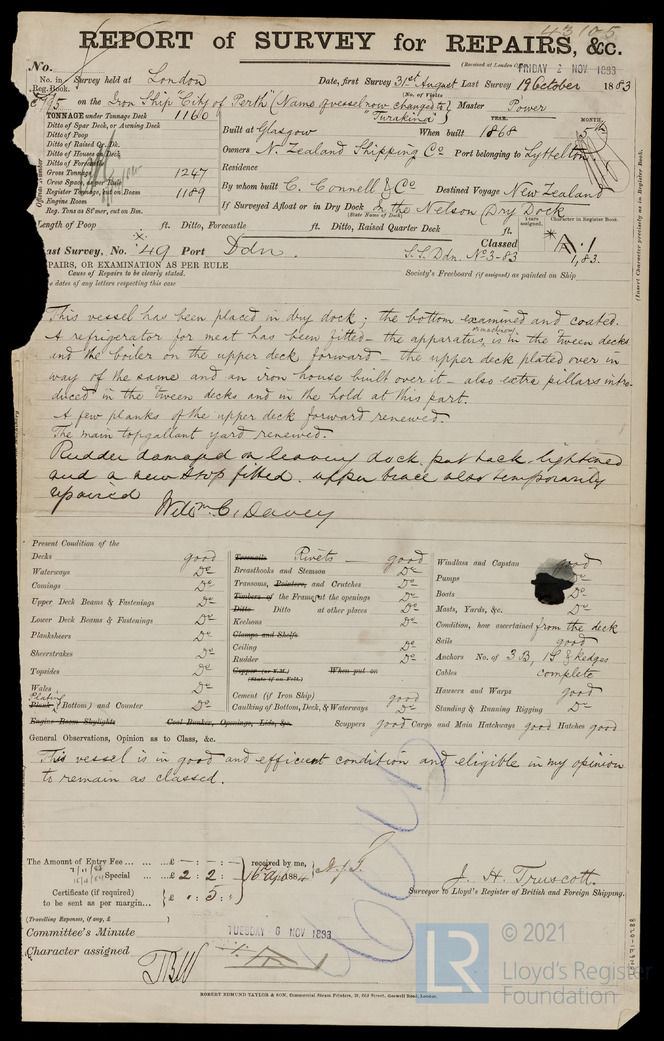 43105
REPORT of SURVEY for REPAIRS, &c.
(Received at London Office FRIDAY 2 NOV 1883
No.
No. in Reg. Book. Survey held at London Date, first Survey 31st August Last Survey 19 October 1883
(No. of Visits
on the Iron Ship "City of Perth" (Name of vessel now changed to "Turakina") Master Power
TONNAGE under Tonnage Deck 1160
Ditto of Spar Deck, or Awning Deck
Ditto of Poop
Ditto of Raised Qr. Dk.
Ditto of Houses on Deck
Ditto of Forecastle
Gross Tonnage 1247
Crew Space, as per Rule
Register Tonnage, cut on Beam 1189
Engine Room
Reg. Tons as St'mer, cut on Bm.
Official Number
YEAR. MONTH.
Built at Glasgow When built 1868
Owners N. Zealand Shipping Co Port belonging to Lyttelton
Residence
By whom built C. Connell & Co Destined Voyage New Zealand
If Surveyed Afloat or in Dry Dock In the Nelson Dry Dock
(State Name of Dock)
Years assigned. Character in Register Book.
(Insert Character precisely as in Register Book.
Length of Poop ft. Ditto, Forecastle ft. Ditto, Raised Quarter Deck ft.
Last Survey, No. 49 Port Ddn. Classed A.1
S.S. Ddn. No 3-83 1,83.
REPAIRS, OR EXAMINATION AS PER RULE
Society's Freeboard (if assigned) as painted on Ship
Cause of Repairs to be clearly stated.
dates of any letters respecting this case
This vessel has been placed in dry dock; the bottom examined and coated.
A refrigerator for meat has been fitted - the apparatus machinery is in the tween decks
and the boiler on the upper deck forward - the upper deck plated over in
way of the same and an iron house built over it - also extra pillars intro-
duced in the tween decks and in the hold at this part.
A few planks of the upper deck forward renewed.
The main topgallant yard renewed.
Rudder damaged on leaving dock, put back, lightened
and a new stop fitted. upper brace also temporarily
repaired Wilsm C. Davey
Present Condition of the
Decks good
Waterways Do
Comings Do
Upper Deck Beams & Fastenings Do
Lower Deck Beams & Fastenings Do
Planksheers Do
Sheerstrakes Do
Topsides Do
Wales Do
Plating
Plank (Bottom) and Counter Do
Engine Room Skylights Coal Bunker, Openings, Lids, &c.
Treenails Rivets good
Breasthooks and Stemson Do
Transoms, Pointers, and Crutches Do
Timbers of the Frame at the openings Do
Ditto Ditto at other places Do
Keelsons Do
Clamps and Shelfs
Ceiling Do
Rudder Do
Copper (or Y.M.) When put on
(State if on Felt.)
Cement (if Iron Ship) good
Caulking of Bottom, Deck, & Waterways Do
Scuppers good Cargo and Main Hatchways good Hatches good
Windlass and Capstan good
Pumps Do
Boats Do
Masts, Yards, &c. Do
Condition, how ascertained from the deck
Sails good
Anchors No. of 3 B, 1 S & Kedges
Cables complete
Hawsers and Warps good
Standing & Running Rigging Do
General Observations, Opinion as to Class, &c.
This vessel is in good and efficient condition and eligible in my opinion
to remain as classed.
The Amount of Entry Fee £ - : - : -
Special 2 : 2 : -
received by me,
16th Apr 1884
Certificate (if required) to be sent as per margin £ 0 : 5 :
(Travelling Expenses, if any, £ )
J. H. Truscott
Surveyor to Lloyd's Register of British and Foreign Shipping.
Committee's Minute TUESDAY 6 NOV 1883
Character assigned
ROBERT EDMUND TAYLOR & SON, Commercial Steam Printers, 19, Old Street, Goswell Road, London.
LR © 2021
Lloyd's Register
Foundation